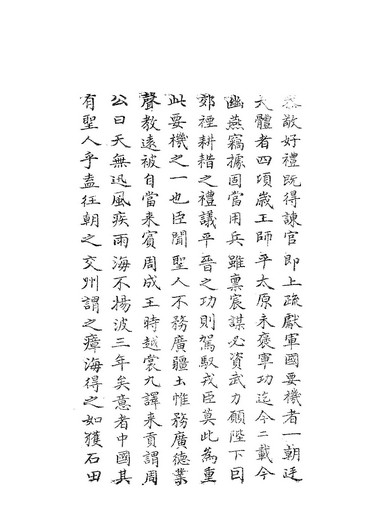 恭敬好禮既得諫官即上疏獻軍國要機者一朝廷
大體者四項歲王師平太原未褒寧功迄今二載今
幽燕竊據固當用兵雖稟宸謀必資武力願陛下因
郊禋耕耤之禮議平晉之功則駕馭戎臣莫此為重
此要機之一也臣聞聖人不務廣疆土惟務廣德業
聲教遠被自當來賓周成王時越裳九譯來貢謂周
公曰天無迅風疾雨海不揚波三年矣意者中國其
有聖人乎盍往朝之交州謂之瘴海得之如獲石田